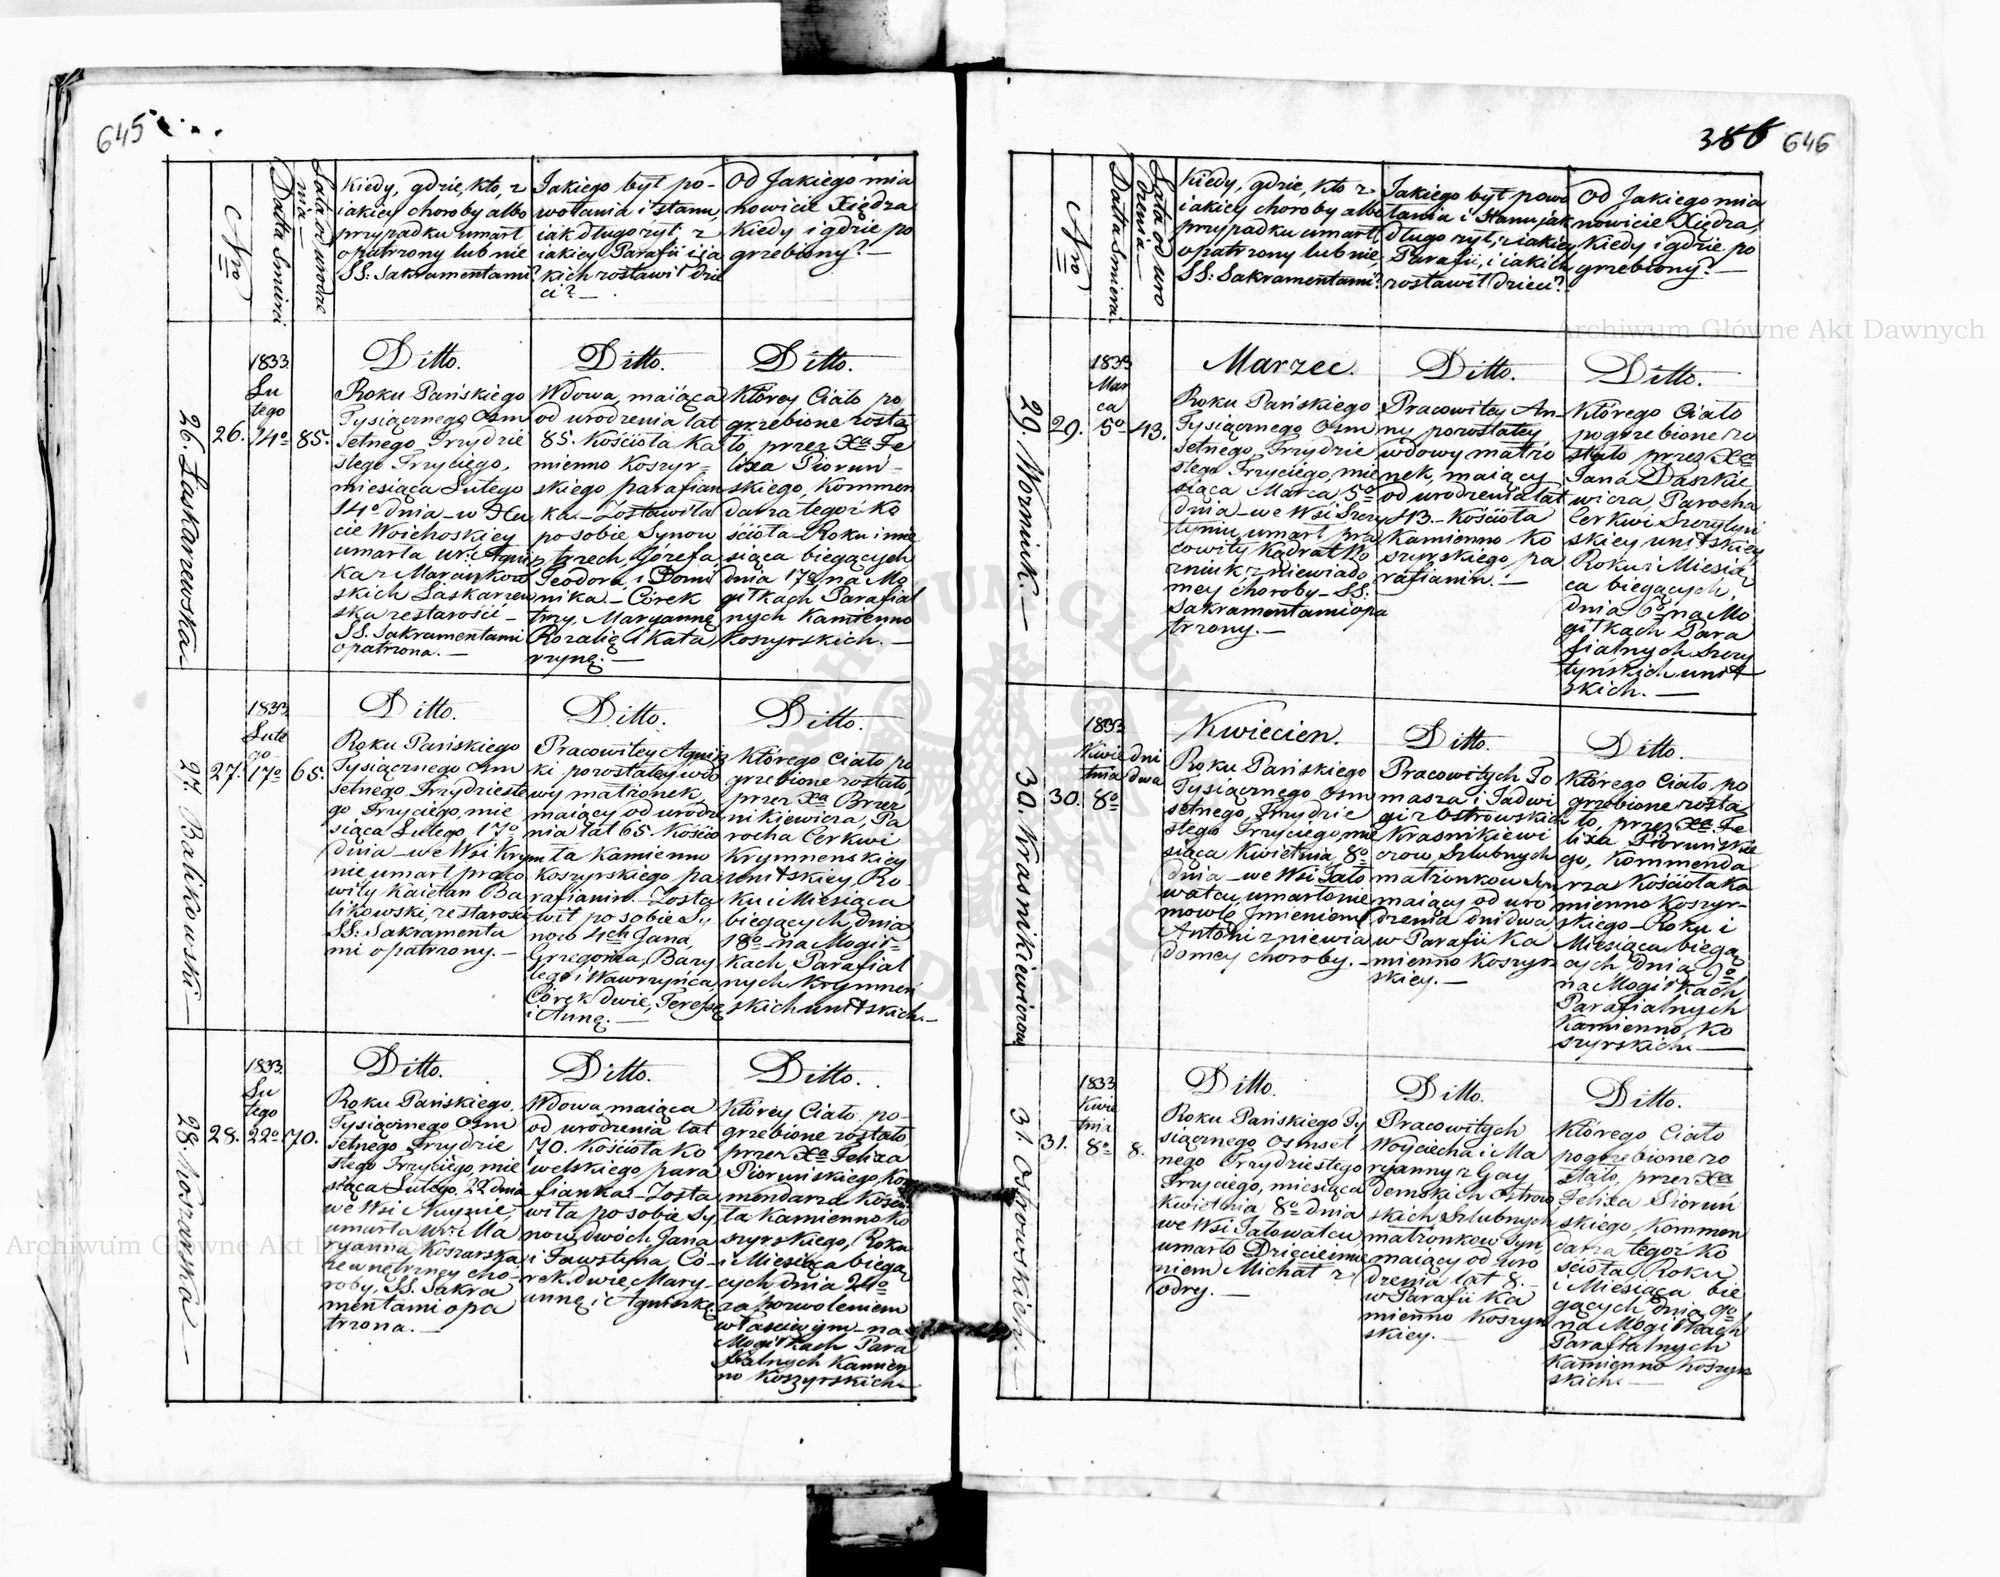 645
Nro
Datta Smierci
Lata od urodze
nia
Kiedy, gdzie, kto, z
iakiey choroby albo
przypadku umarł
opatrzony lub nie
SS: Sakramentami?
Jakiego był po-
wołania i stanu,
iak długo żył z
iakiey Parafii i ja
kich zostawił dzie
ci? —
Od Jakiego mia
nowicie Xiędza
kiedy i gdzie po
grzebiony? —
26. Laskarzewska
26.
1833
Lu
tego
14o
85.
Ditto.
Roku Pańskiego
Tysiącznego Osm
setnego Trzydzie
stego Trzyciego,
miesiąca Lutego
14o dnia – w Hu
cie Woichoskiey
umarła ur: Agnis
ka z Marcinkow
skich Laskarzew
ska ze starości –
SS. Sakramentami
opatrzona. —
Ditto.
Wdowa, maiąca
od urodzenia lat
85. Kościoła Ka
mienno Koszyr=
skiego parafian
ka. – Zostawiła
po sobie Synow
trzech, Józefa,
Teodora i Domi
nika. – Córek
trzy, Maryannę
Rozalię i Kata
rzynę. —
Ditto.
Którey Ciało po
grzebione zosta
ło, przez Xa Fe
lixa Piorun–
skiego, Kommen
darza tegoż Ko
ścioła – Roku i mie
siąca bieżących
dnia 17o na Mo
giłkach Parafial
nych Kamienno
Koszyrskich. —
27. Balikowski —
27.
1833
Lute
go
17o
65.
Ditto.
Roku Pańskiego
Tysiącznego Osm
setnego Trzydzieste
go Trzyciego, mie
siąca Lutego, 17o
dnia – we Wsi Krym
nie umarł praco
wity Kaietan Ba
likowski, ze starości
SS: Sakramenta
mi opatrzony. —
Ditto.
Pracowitey Agnisz
ki pozostałey wdo
wy małżonek,
maiący od urodze
nia lat 65. Kościo
ła Kamienno
Koszyrskiego pa
rafianin. – Zosta
wił po sobie Sy
nów 4ch Jana,
Grzegorza, Bazy
lego i Wawrzyńca,
Córek dwie, Teressę
i Annę. —
Ditto.
Którego Ciało po
grzebione zostało,
przez Xa Brzez
nikiewicza, Pa
rocha Cerkwi
Krymnenskiey
unitskiey, Ro–
ku i Miesiąca
bieżących, dnia
18o – na Mogił–
kach Parafial
nych Krymneń
skich unitskich. —
28. Koszarska —
28.
1833
Lu
tego
22o
70.
Ditto.
Roku Pańskiego,
Tysiącznego Osm
setnego Trzydzie
stego Trzyciego, mie
siąca Lutego, 22 dnia
we Wsi
umarła Ur: Ma
ryanna Koszarska
zewnętrzney cho–
roby, SS. Sakra
mentami opa
trzona. —
Ditto.
Wdowa, maiąca
od urodzenia lat
70. Kościoła Ko
welskiego para
fianka. – Zosta
wiła po sobie Sy
now, dwóch Jana
i Fawstyna, Có–
rek dwie, Mary–
annę i Agniszkę
Ditto.
Którey Ciało, po–
grzebione zostało
przez Xa Felixa
Piorunskiego, Ko
mendarza Kościo
ła Kamienno Ko
szyrskiego, Roku
i Miesiąca bieżą
cych, dnia 24o
za pozwoleniem
właściwym – na
Mogiłkach Para
fialnych Kamien
no Koszyrskich —
386 646
Nro
Datta Smierci
Lata od uro
dzenia —
Kiedy, gdzie, kto z
iakiey choroby albo
przypadku umarł,
opatrzony lub nie,
SS: Sakramentami?
Jakiego był powo
łania i stanu, jak
długo żył, z iakiey
Parafii, i iakich
zostawił dzieci? –
Od Jakiego mia
nowicie Xiędza,
kiedy i gdzie po
grzebiony? —
29. Wozniuk. —
29.
1833
Mar
ca
5o
43.
Marzec.
Roku Pańskiego
Tysiącznego Osm
setnego, Trzydzie
stego Trzyciego, mie
siąca Marca, 5o
dnia – we Wsi Szczy
tyniu, umarł pra
cowity Kądrat Wo
zniuk, z niewiado
mey choroby – SS:
Sakramentami opa
trzony. —
Ditto.
Pracowitey An–
ny pozostałey
wdowy małżo
nek, maiący
od urodzenia lat
43. – Kościoła
Kamienno Ko
szyrskiego, pa
rafianin. —
Ditto.
Którego Ciało
pogrzebione zo
stało przez Xa
Jana Daszkie
wicza, Parocha
Cerkwi Szczytyni
skiey unitskiey
Roku i Miesią
ca bieżących,
dnia 6o na Mo
giłkach Para
fialnych Szczy
tyńskich unit
skich. —
30. Krasnikiewiczow
30.
1833
Kwie
tnia
8o
dni
dwa
Kwiecien.
Roku Pańskiego
Tysiącznego Osm
setnego, Trzydzie
stego Trzyciego, mie
siąca Kwietnia, 8o
dnia – we Wsi Jało
watcu, umarło nie
mowlę Jmieniem
Antoni z niewia
domey choroby. –
Ditto.
Pracowitych To
masza i Jadwi
gi z Ostrowskich
Krasnikiewi
czow, Szlubnych
małżonkow Syn
maiący od uro
dzenia, dni dwa
w Parafii Ka
mienno Koszyr
skiey. —
Ditto.
Którego Ciało po
grzebione zosta
ło, przez Xa Fe
lixa Piorunskie
go, Kommenda
rza Kościoła Ka
mienno Koszyr–
skiego – Roku i
Miesiąca bieżą
cych Dnia 9o
na Mogiłkach
Parafialnych
Kamienno Ko
szyrskich. —
31. Ostrowskich. —
31.
1833
Kwie
tnia
8o
8.
Ditto.
Roku Pańskiego Ty
siącznego Osmset
nego Trzydziestego
Trzyciego, miesiąca
Kwietnia 8o dnia
we Wsi Jałowatcu,
umarło Dziecie imie
niem Michał z
odry. —
Ditto.
Pracowitych
Woyciecha i Ma
ryanny z Gay
demskich Ostrow
skich Szlubnych
małżonkow Syn,
maiący od uro
dzenia lat 8. –
w Parafii Ka
mienno Koszyr
skiey. —
Ditto.
Którego Ciało
pogrzebione zo
stało, przez Xa
Felixa Pioruń
skiego, Kommen
darza tegoż Ko
ścioła, Roku
i Miesiąca bie
żących, dnia 9o
na Mogiłkach
Parafialnych
Kamienno Koszyr
skich. —
Archiwum Główne Akt Dawnych
Archiwum Główne Akt Dawnych